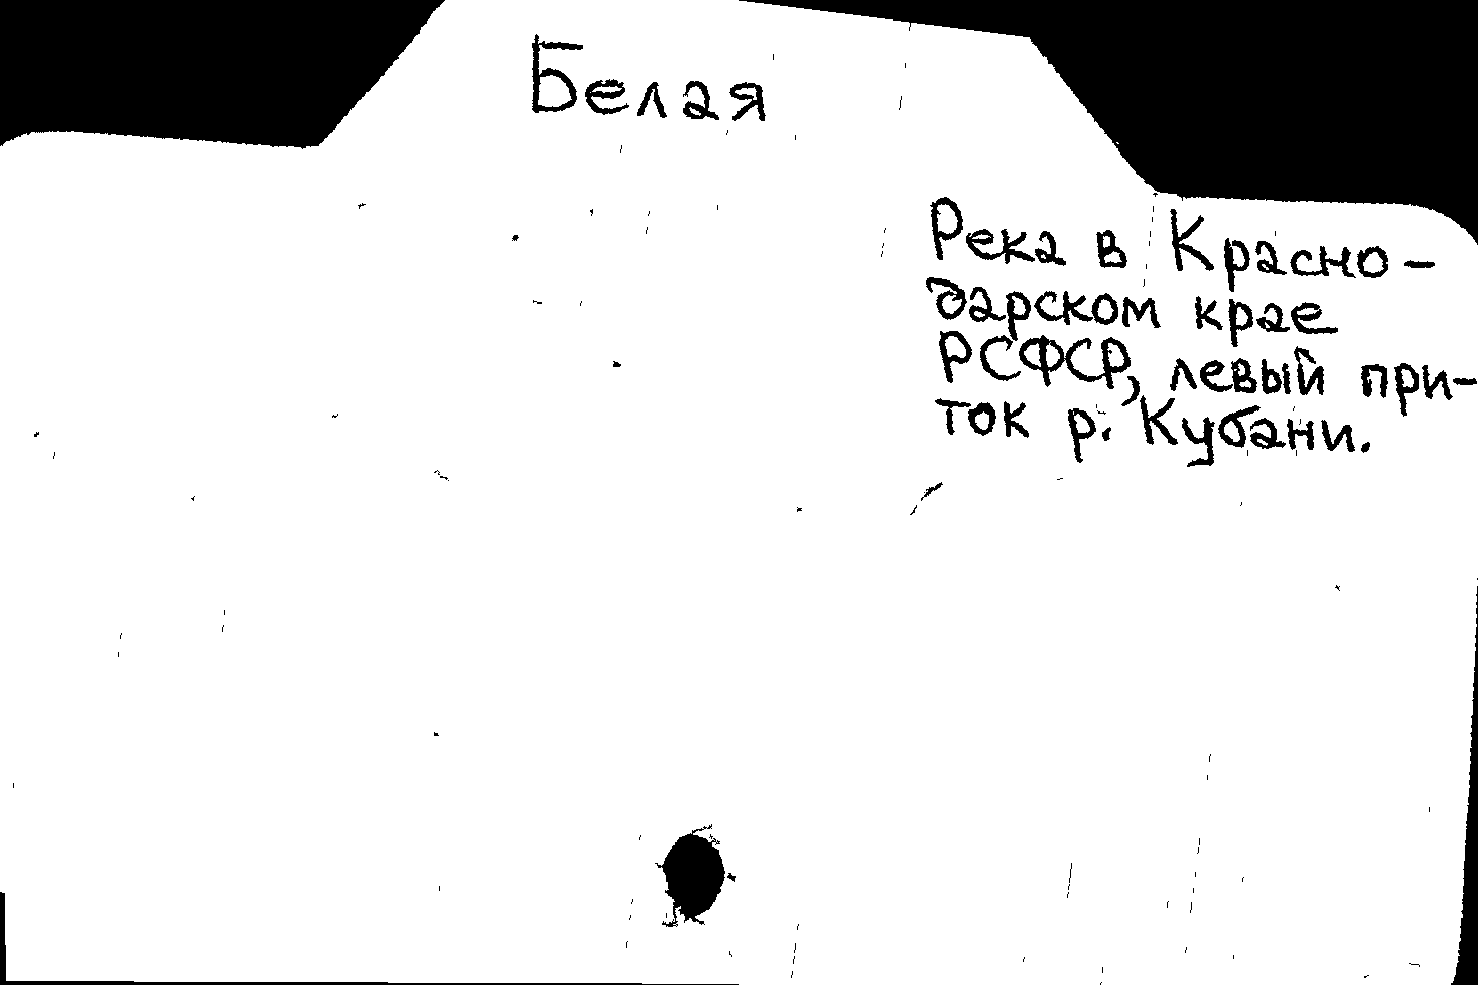 Белая
Река в Красно-
дарском крае
РСФСР, левый при-
ток р. Кубани.